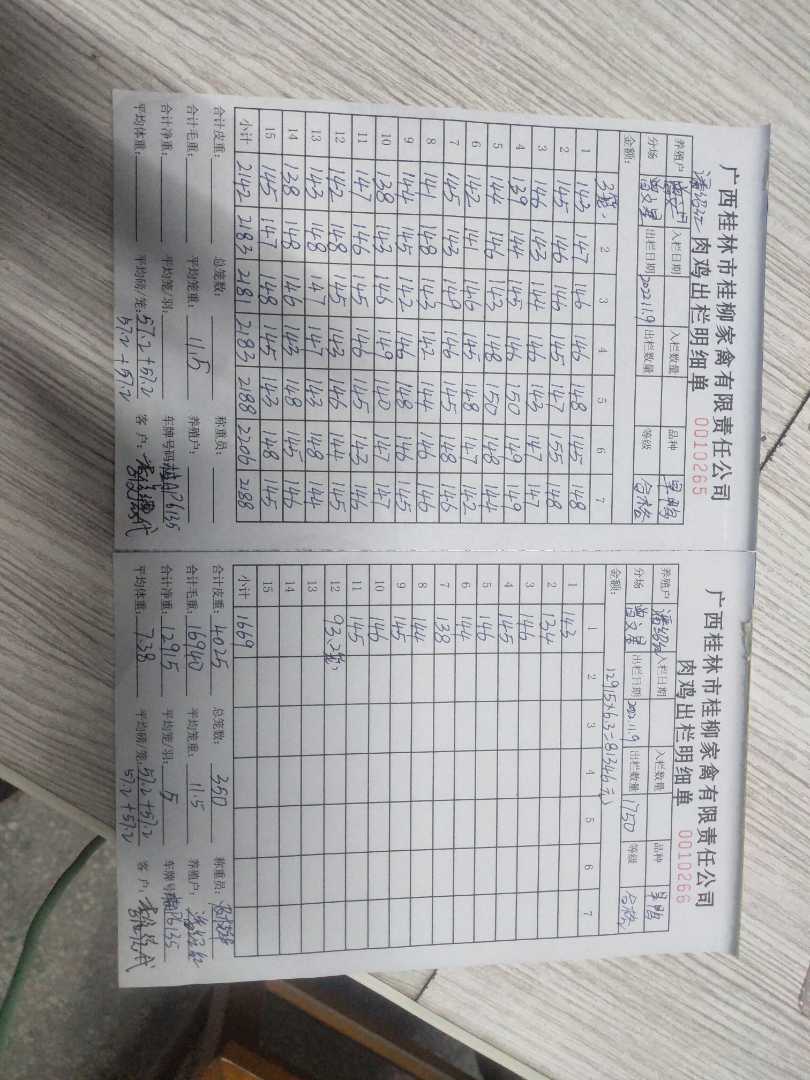 广西桂林市桂柳家禽有限责任公司
肉鸡出栏明细单 0010265
养殖户 潘绍红 入栏日期 入栏数量 品种 旱鸭
分场 曾文星 出栏日期 2022.11.9 出栏数量 等级 合格
金额:
1 2 3 4 5 6 7
1 143 147 146 146 148 145 148
2 145 146 146 145 147 155 148
3 146 143 144 146 143 147 147
4 139 144 145 146 150 149 149
5 144 146 143 148 150 148 144
6 142 141 146 145 148 147 142
7 145 143 149 146 145 148 146
8 141 148 143 142 144 146 146
9 144 145 142 146 148 146 145
10 138 143 146 149 140 147 147
11 147 146 145 146 145 143 146
12 142 148 145 143 146 144 145
13 143 148 147 147 143 148 144
14 138 148 146 143 148 145 146
15 145 147 148 145 143 148 145
小计 2142 2183 2181 2183 2188 2206 2188
合计皮重: 总笼数: 称重员:
合计毛重: 平均笼重: 11.5 养殖户:
合计净重: 平均笼/羽: 车牌号码: 桂A76135
平均体重: 平均磅/笼: 57.2+57.2 客户:
57.2+57.2
广西桂林市桂柳家禽有限责任公司
肉鸡出栏明细单 0010266
养殖户 潘绍红 入栏日期 入栏数量 品种 旱鸭
分场 曾文星 出栏日期 2022.11.9 出栏数量 1750 等级 合格
金额: 12915×6.3=81346元
1 2 3 4 5 6 7
1 143
2 134
3 146
4 145
5 146
6 144
7 138
8 144
9 145
10 146
11 145
12 93.2笼
13
14
15
小计 1669
合计皮重: 4025 总笼数: 350 称重员:
合计毛重: 16940 平均笼重: 11.5 养殖户: 潘绍红
合计净重: 12915 平均笼/羽: 5 车牌号码: 桂A76135
平均体重: 7.38 平均磅/笼: 57.2+57.2 客户:
57.2+57.2